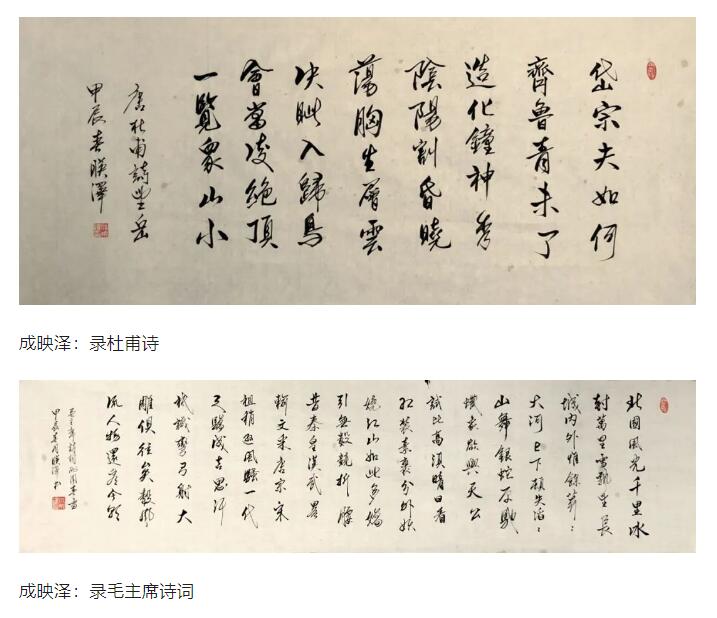 岱宗夫如何
齊魯青未了
造化鐘神秀
陰陽割昏曉
蕩胸生層雲
決眦入歸鳥
會當凌絕頂
一覽衆山小
唐杜甫詩望岳
甲辰春映澤
成映泽：录杜甫诗
北國風光千里冰
封萬里雪飄望長
城内外惟餘莽〻
大河上下頓失滔〻
山舞銀蛇原馳
蠟象欲與天公
試比高須晴日看
紅裝素裹分外妖
嬈江山如此多嬌
引無數競折腰
昔秦皇漢武畧
輸文采唐宗宋
祖稍遜風騷一代
天驕成吉思汗
祇識彎弓射大
雕俱往矣數風
流人物還看今朝
毛主席詩詞沁園春雪
甲辰春月映澤書
成映泽：录毛主席诗词